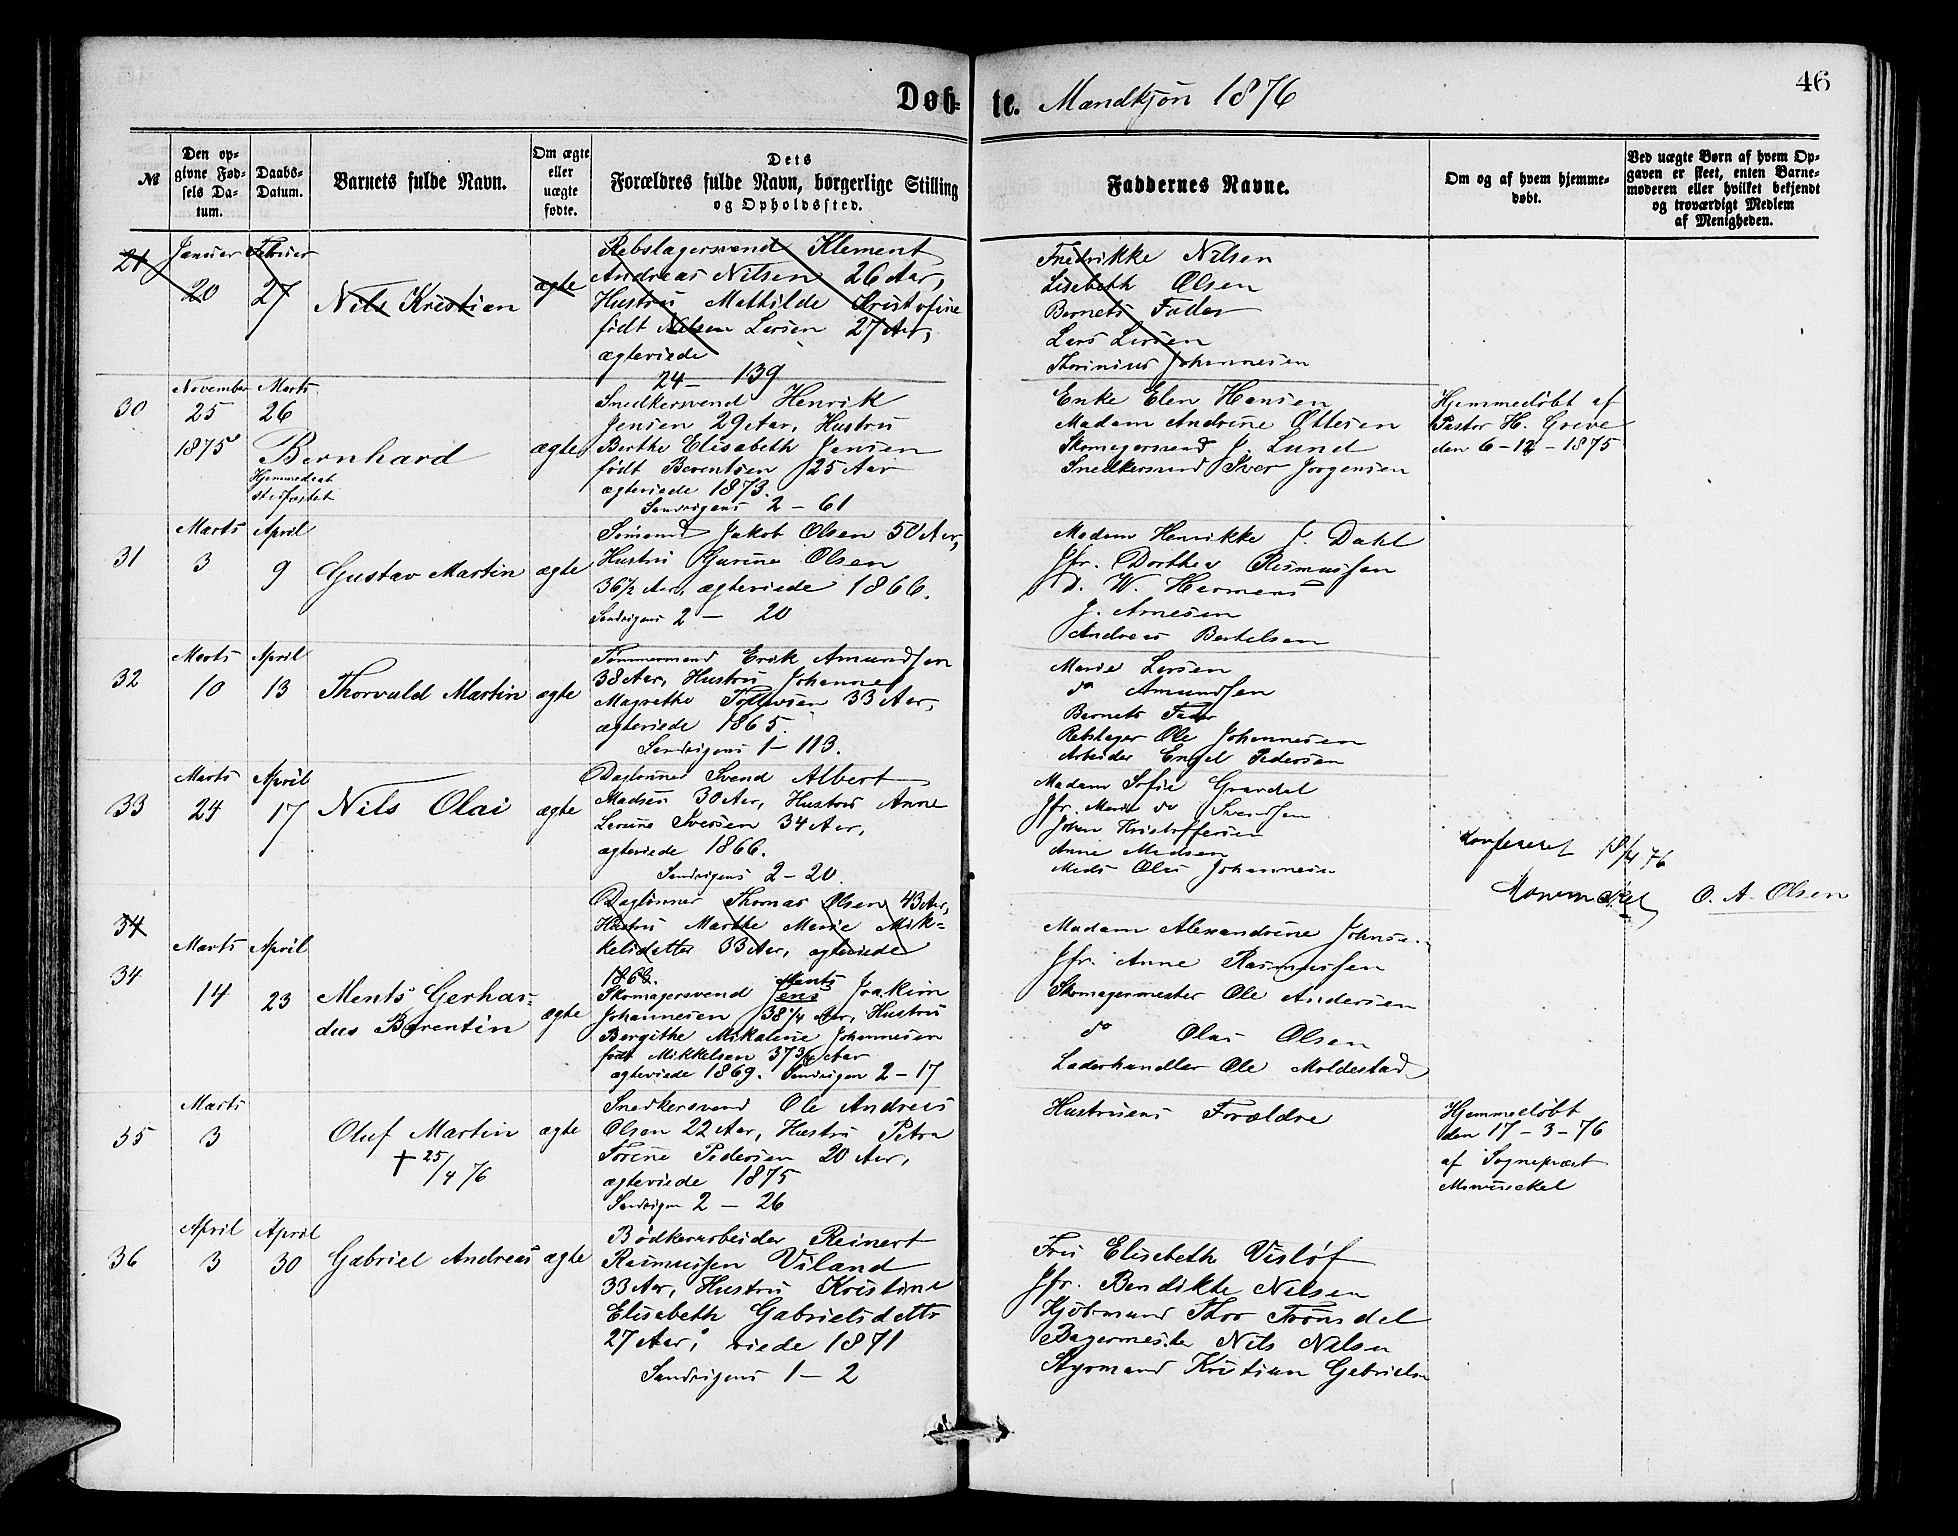 Døb-
te. Mandkjøn 1876
46
№
Den op-
givne Fød-
sels Da-
tum.
Daabs-
Datum.
Barnets fulde Navn.
Om ægte
eller
uægte
fødte.
Dets
Forældres fulde Navn, borgerlige Stilling
og Opholdssted.
Faddernes Navne.
Om og af hvem hjemme-
døbt.
Ved uægte Børn af hvem Op-
gaven er skeet, enten Barne-
moderen eller hvilket bekjendt
og troværdigt Medlem
af Menigheden.
21
Januar
20
Februar
27
Nils Kristian
ægte
Rebslagersvend Klement
Andreas Nilsen 26 Aar,
Hustru Mathilde Kristofine
født Nilsen Larsen 27 Aar,
ægteviede
24 – 139
Fredrikke Nilsen
Lisebeth Olsen
Barnets Fader
Lars Larsen
Thorinius Johannesen
30
November
25
1875
Marts
26
Bernhard
Hjemmedaab
stadfæstet
ægte
Snedkersvend Henrik
Jensen 29 Aar, Hustru
Berthe Elisabeth Jensen
født Berentsen 25 Aar
ægteviede 1873.
Sandvigens 2 – 61
Enke Elen Hansen
Madam Andrine Ottesen
Skomagersvend J. Lund
Snedkersvend Iver Jørgensen
Hjemmedøbt af
Pastor H. Greve
den 6-12-1875
31
Marts
3
April
9
Gustav Martin
ægte
Sømand Jakob Olsen 50 Aar,
Hustru Gurine Olsen
36½ Aar, ægteviede 1866.
Sandvigens 2 – 20
Madam Henrikke J. Dahl
Jfr. Dorthea Rasmussen
D. W. Hermens
J. Arnesen
Andreas Bertelsen
32
Marts
10
April
13
Thorvald Martin
ægte
Tømmermand Erik Amundsen
38 Aar, Hustru Johanne
Magrethe Tollevsen 33 Aar,
ægteviede 1865.
Sandvigens 1 – 113.
Marie Larsen
do Amundsen
Barnets Fader
Rebslager Ole Johannesen
Arbeider Engel Pedersen
33
Marts
24
April
17
Nils Olai
ægte
Daglønner Svend Albert
Madsen 30 Aar, Hustru Anne
Larine Iversen 34 Aar,
ægteviede 1866.
Sandvigens 2 – 20
Madam Sofie Grandal
Jfr. Marie do Svendsen
Johan Kristoffersen
Anne Madsen
Mads Olai Johannesen
Konfereret 18/4 76
O. A. Olsen
34
Daglønner Thomas Olsen 43 Aar,
Hustru Marthe Marie Mik-
kelsdatter 33 Aar, ægteviede
1866.
34
Marts
14
April
23
Ments Gerhar-
dus Berentin
ægte
Ments
Skomagersvend Jens Joakim
Johannesen 38¼ Aar, Hustru
Bergithe Mikaline Johannesen
født Mikkelsen 37¾ Aar
ægteviede 1869. Sandvigen 2 – 17
Madam Alexandrine Johnsen
Jfr. Anne Rasmussen
Skomagermester Ole Andersen
do Olai Olsen
Læderhandler Ole Moldestad
35
Marts
3
Oluf Martin
† 25/4 76
ægte
Snedkersvend Ole Andreas
Olsen 22 Aar, Hustru Petra
Sørine Pedersen 20 Aar,
ægteviede 1875
Sandvigen 2 – 26
Hustruens Forældre
Hjemmedøbt
den 17-3-76
af Sognepræst
36
April
3
April
30
Gabriel Andreas
ægte
Bødkerarbeider Reinert
Rasmussen Viland
33 Aar, Hustru Kristine
Elisabeth Gabrielsdatter
27 Aar, viede 1871
Sandvigens 1 – 2
Fru Elisabeth Visløf
Jfr. Bendikte Nilsen
Kjøbmand Thor Frønsdal
Bagermester Nils Nilsen
Styrmand Kristian Gabrielsen